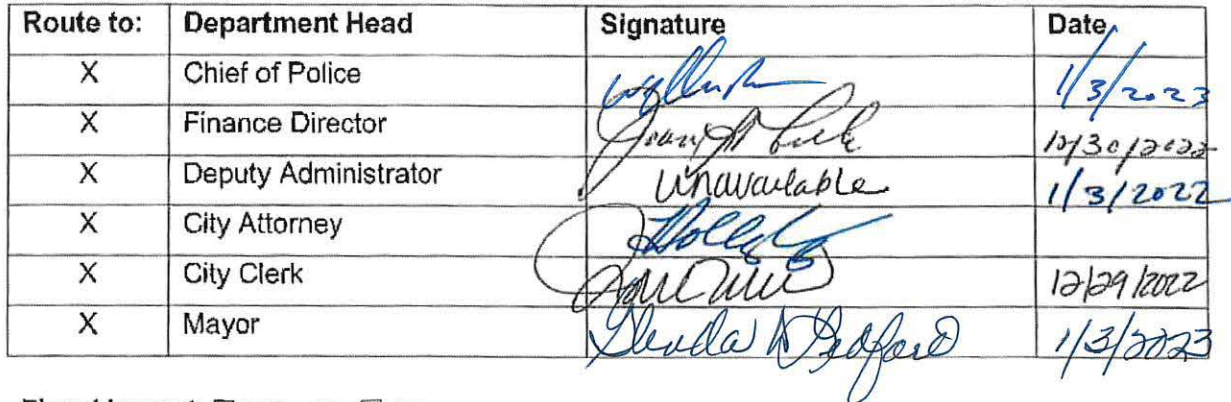 Route to: Department Head Signature Date
X Chief of Police 1/3/2023
X Finance Director 12/30/2022
X Deputy Administrator unavailable 1/3/2022
X City Attorney
X City Clerk 12/29/2022
X Mayor 1/3/2023